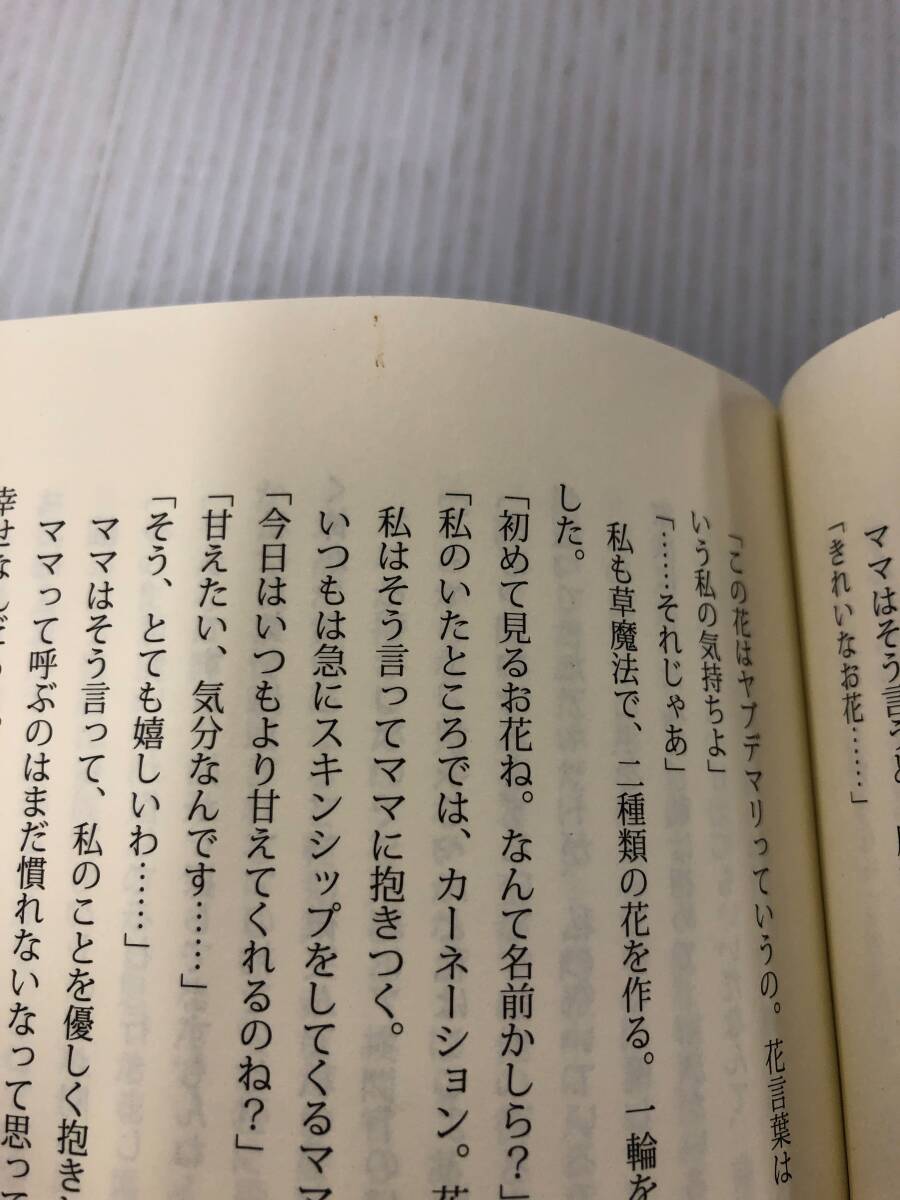 ママはそう言うと、
「きれいなお花……」
「この花はヤブデマリっていうの。花言葉は
いう私の気持ちよ」
「……それじゃあ」
私も草魔法で、二種類の花を作る。一輪を
した。
「初めて見るお花ね。なんて名前かしら？」
「私のいたところでは、カーネーション。花
私はそう言ってママに抱きつく。
いつもは急にスキンシップをしてくるママ
「今日はいつもより甘えてくれるのね？」
「甘えたい、気分なんです……」
「そう、とても嬉しいわ……」
ママはそう言って、私のことを優しく抱き
ママって呼ぶのはまだ慣れないなって思って
幸せなんだ